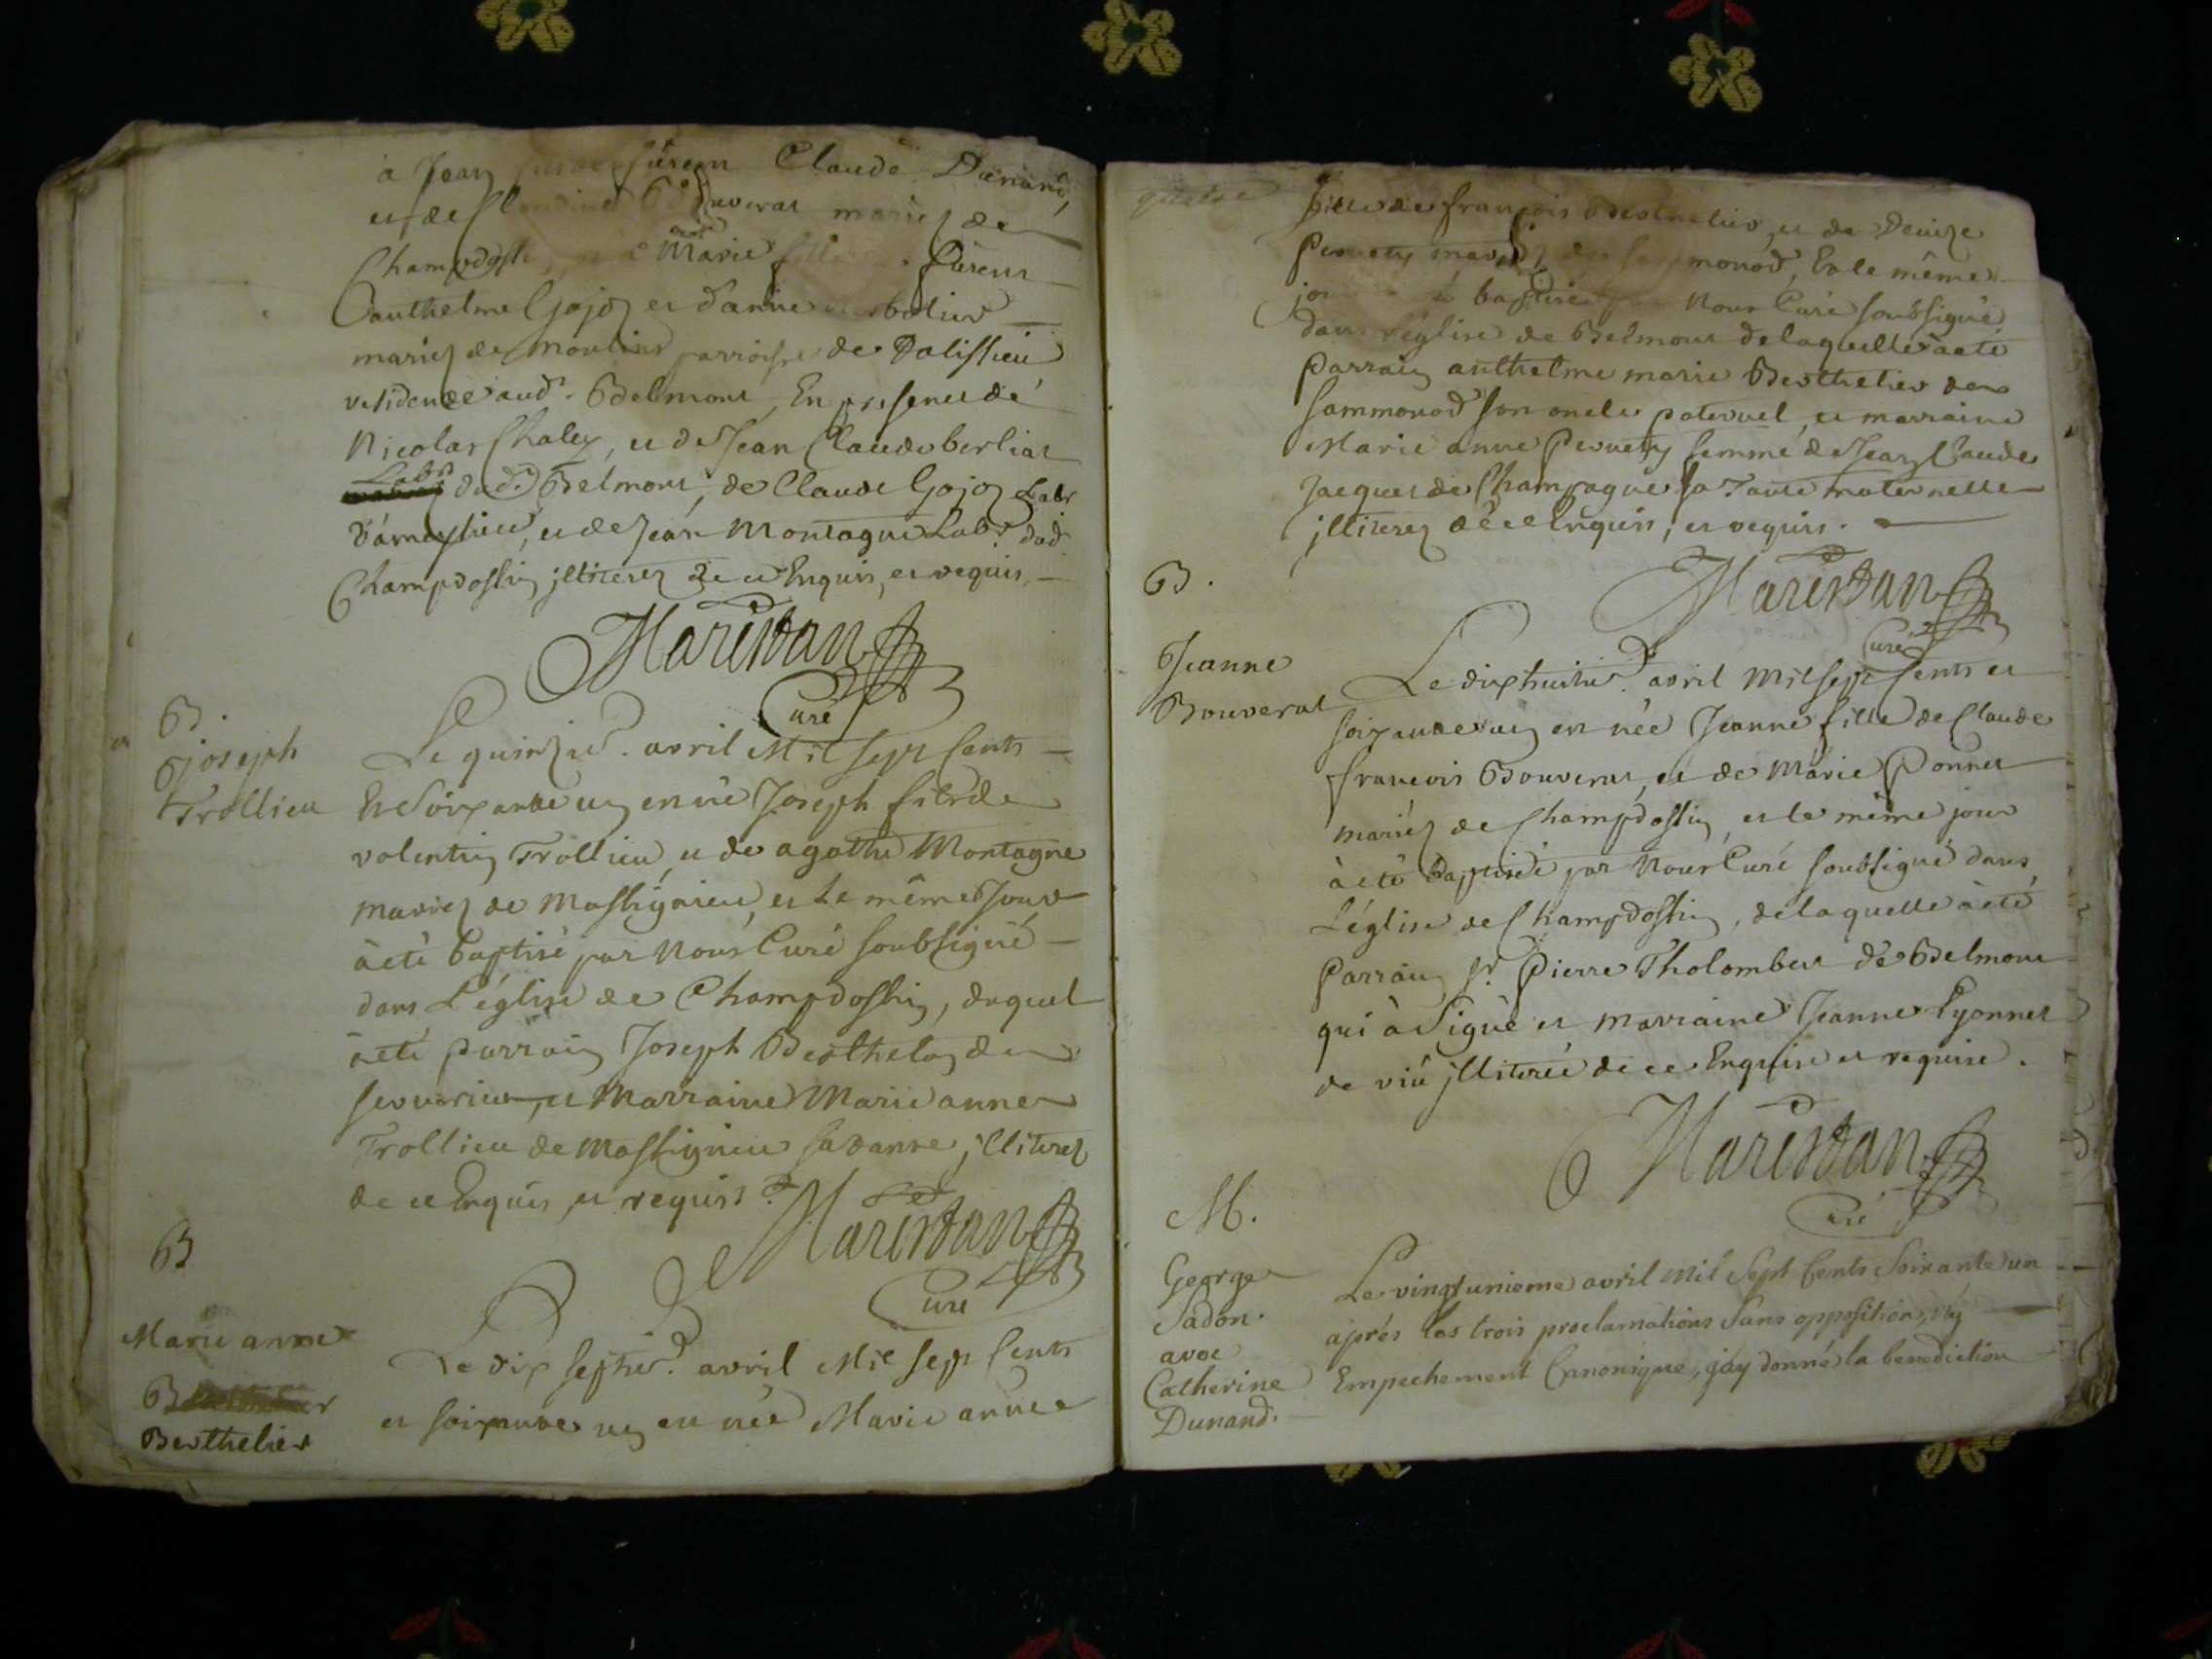 à Jean fils de fûrent Claude Dunand,
et de Claudine Bouverat mariez de
Champdossin, Marie fille fûrent
Canthelme Gojoz et d'anne
mariez de Moulins parroisse de Talissieu
residente aud. Belmont, En presence de
Nicolas Chaley, et de Jean Claude berliat
Labrs dud. Belmont, de Claude Gojoz Labr
d'ameysieu, et de Jean Montagne Labr dud
Champdossin illiterez de ce Enquis, et requis, —
Marestan
Curé
B.
joseph
Trollieu
Le quinzie. avril Mil sept Cents —
Et Soixante un est né Joseph fils de
valentin Trollieu, et de agathe Montagne
mariez de Massignieu, et Le même Jour
à eté baptisé par Nous Curé soubsigné —
dans L'église de Champdossin, duquel
à eté parrain Joseph Berthelon de
et Marraine Marie anne
Trollieu de Massignieu sa tante illiterez
de ce Enquis, et requis.
Marestan
Curé
B
Marie anne
Berthelier
Le dix septie. avril Mil sept Cents
et soixante un est née Marie anne
quatre
fille de françois Berthelier, et de Denize
Pernety mariez de sammonod, Et le même
jour à baptisée par Nous Curé soubsigné
dans l'église de Belmont de laquelle à eté
Parrain anthelme marie Berthelier de
sammonod son oncle paternel, et marraine
Marie anne Pernety femme de Jean Claude
Jacques de Champagne sa Tante maternelle
illiterez de ce Enquis, et requis.
Marestan
Curé
B.
Jeanne
Bouverat
Le dixhuitie. avril Mil sept Cents et
soixante un est née Jeanne fille de Claude
francois Bouverat, et de Marie Ponnet
mariéz de Champdossin, et le même jour
à eté Baptisée par Nous Curé soubsigné dans
L'église de Champdossin, de laquelle à eté
Parrain sr. Pierre Tholombert de Belmont
qui à Signé et marraine Jeanne Lyonnet
de viû illiterée de ce Enquise et requise.
Marestan
Curé
M.
George
Sadon.
avec
Catherine
Dunand.
Le vingt unieme avril mil Sept Cents Soixante un
aprés les trois proclamations Sans opposition, ny
Empechement Canonique, j'ay donné la benediction